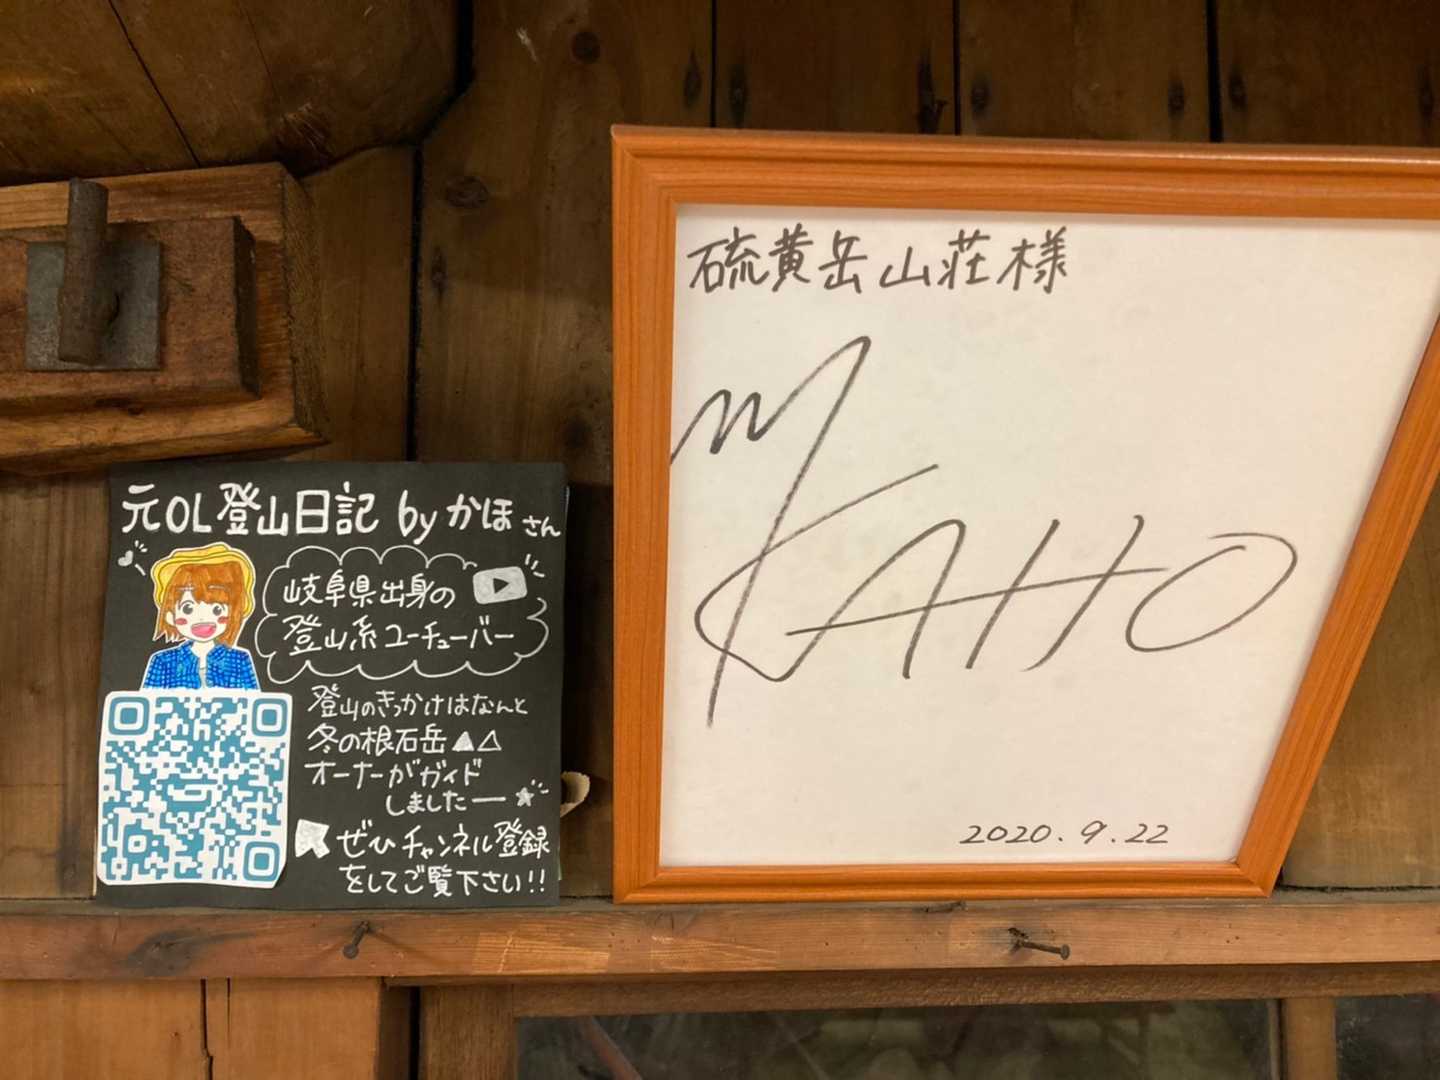 元OL登山日記 by かほさん
岐阜県出身の
登山系ユーチューバー
登山のきっかけはなんと
冬の根石岳▲△
オーナーがガイド
しましたー☆
ぜひチャンネル登録
をしてご覧下さい!!
硫黄岳山荘様
KAHO
2020.9.22